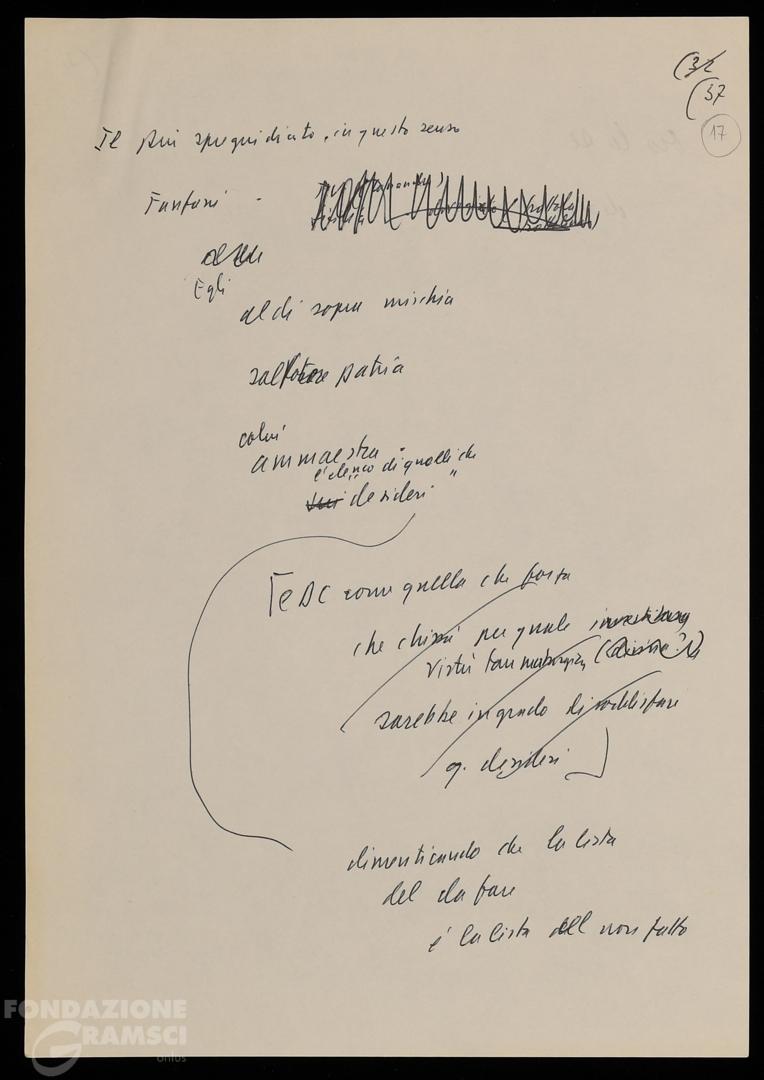 (32
(37
17
Il più spregiudicato, in questo senso
Fanfani -
Egli
al di sopra mischia
salvatore patria
colui
ammaestra
e elenco di quelli che
desideri "
[e DC come quella che
che chissà per quale investitura
virtù taumaturgica (divina?)
sarebbe in grado di soddisfare
q. desideri ]
dimenticando che la lista
del da fare
è la lista del non fatto
FONDAZIONE
GRAMSCI
onlus